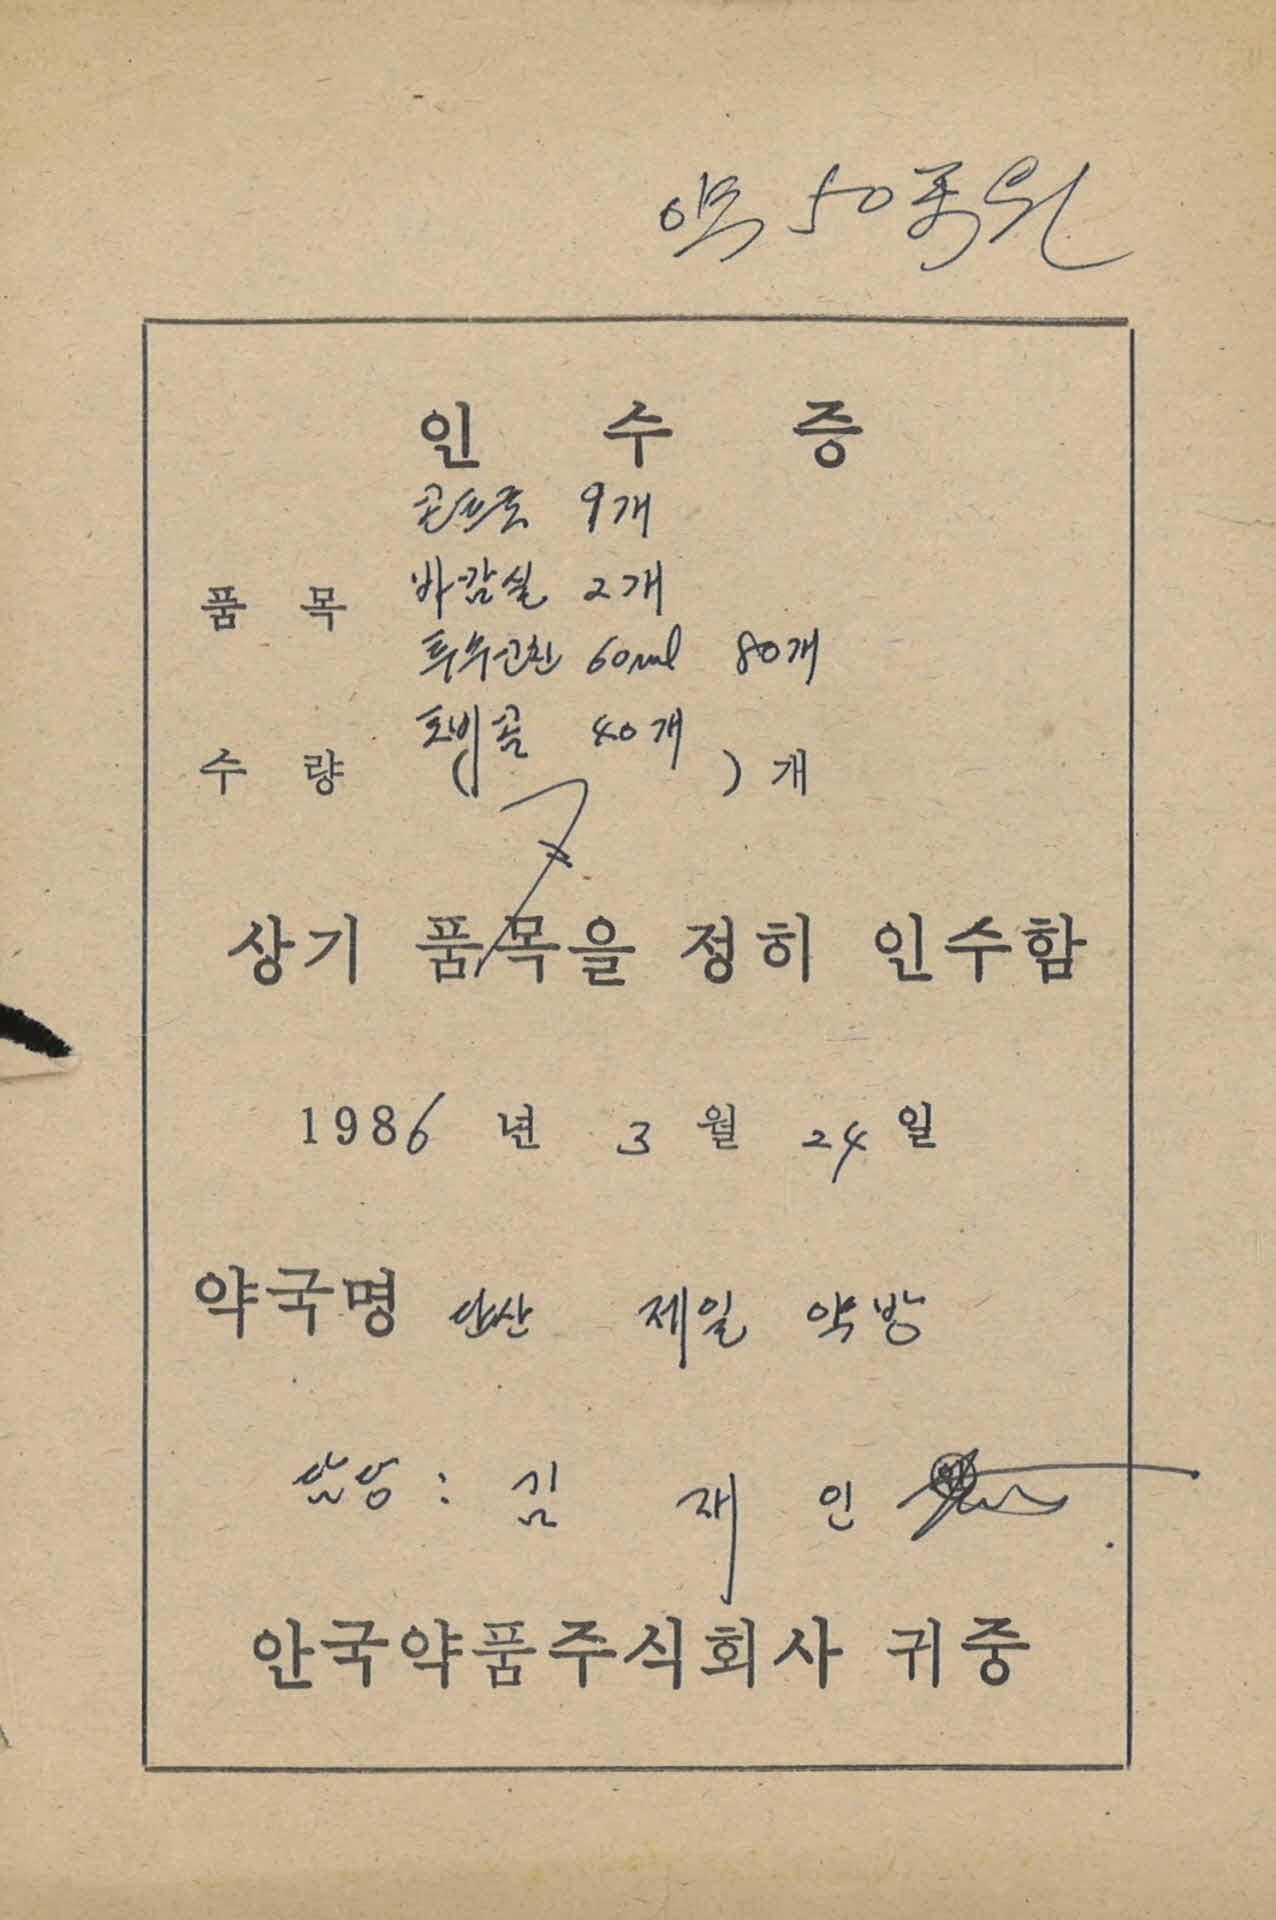 약 50萬원
인 수 증
콘트로 9개
바감실 2개
품 목
투수코친 60ml 80개
토비콤 40개
수 량 ( ) 개
상기 품목을 정히 인수함
1986 년 3 월 24 일
약국명 단산 제일 약방
담당 : 김 재 인
안국약품주식회사 귀중